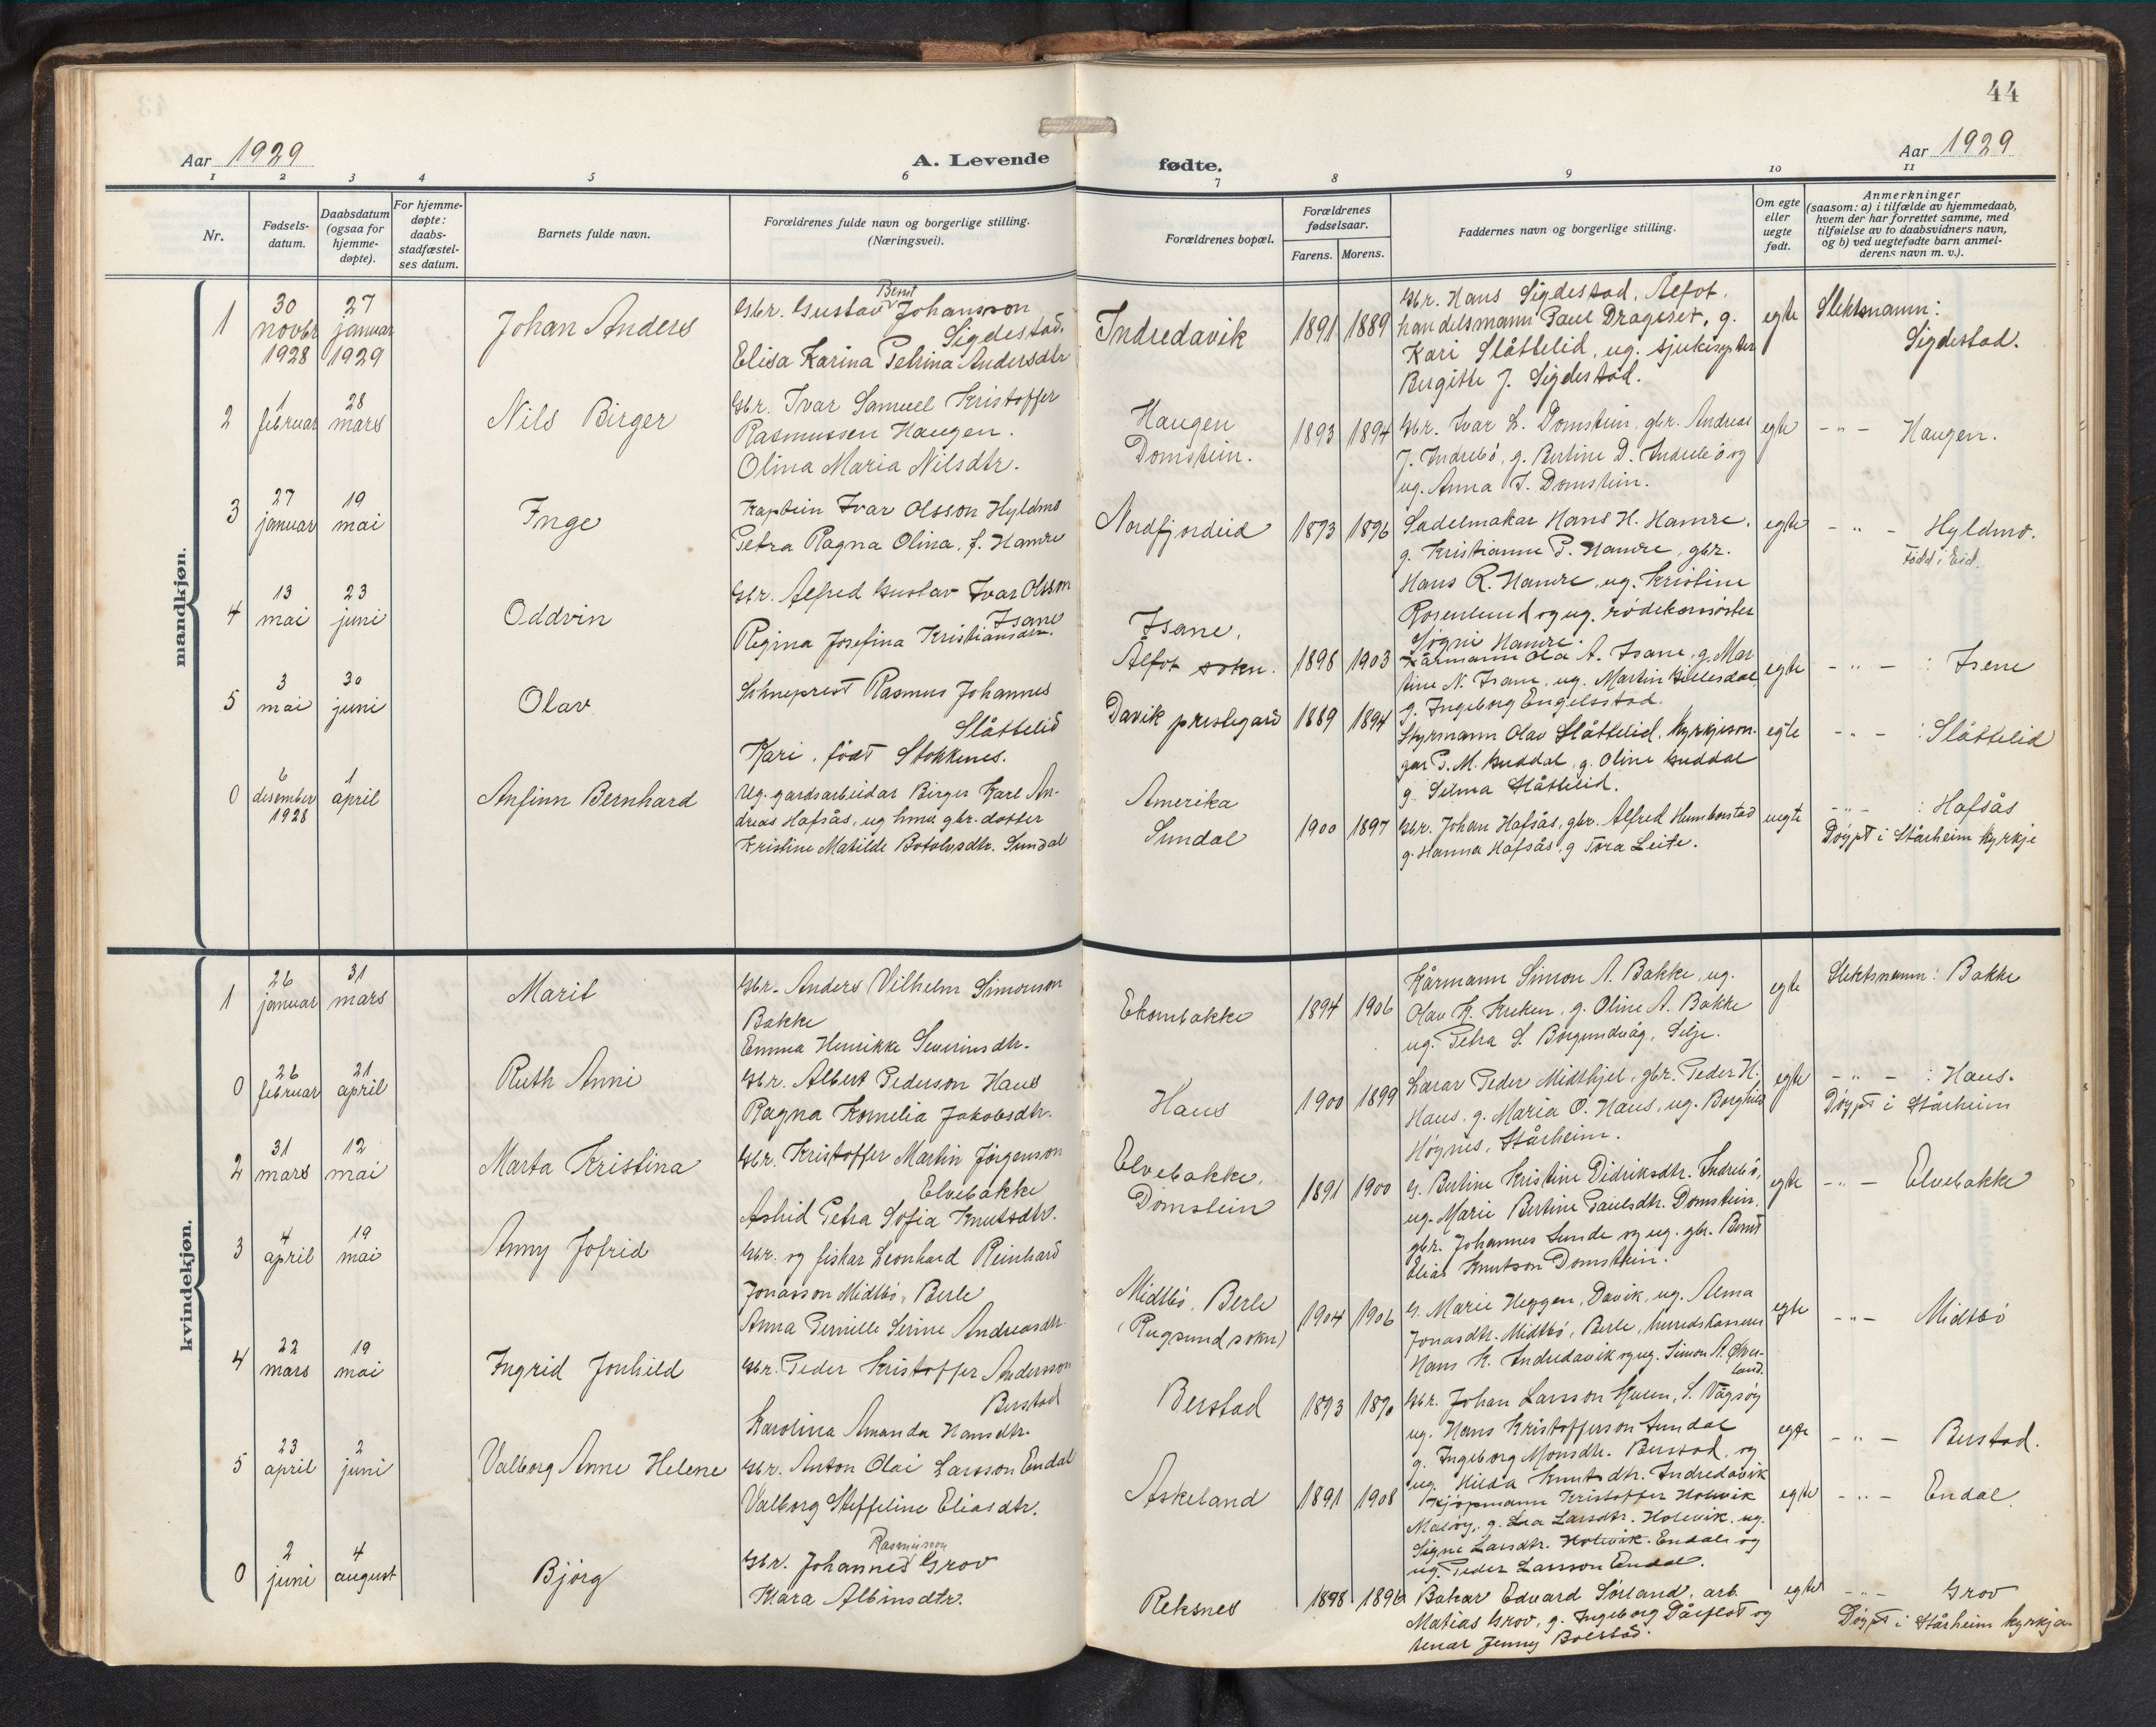 44
Aar 1929
A. Levende
fødte.
Aar 1929
1 2 3 4 5 6 7 8 9 10 11
Nr.
Fødsels-
datum.
Daabsdatum
(ogsaa for
hjemme-
døpte).
For hjemme-
døpte:
daabs-
stadfæstel-
ses datum.
Barnets fulde navn.
Forældrenes fulde navn og borgerlige stilling.
(Næringsvei).
Forældrenes bopæl.
Forældrenes
fødselsaar.
Farens. Morens.
Faddernes navn og borgerlige stilling.
Om egte
eller
uegte
født.
Anmerkninger
(saasom: a) i tilfælde av hjemmedaab,
hvem der har forrettet samme, med
tilføielse av to daabsvidners navn,
og b) ved uegtefødte barn anmel-
derens navn m. v.).
mandkjøn.
1
30
novbr
1928
27
januar
1929
Johan Anders
Bernt
Gbr. Gustav Johansson
Sigdestad.
Elisa Karina Petrina Andersdtr
Indredavik
1891
1889
Gbr. Hans Sigdestad, Ålfot,
handelsmann Paul Drageset, g.
Kari Slåttelid, ug. sjukesyster
Birgitte J. Sigdestad.
egte
Slektsnamn:
Sigdestad.
2
1
februar
28
mars
Nils Birger
Gbr. Ivar Samuel Kristoffer
Rasmussen Haugen.
Olina Maria Nilsdtr.
Haugen
Domstein.
1893
1894
Gbr. Ivar L. Domstein, gbr. Andreas
J. Indrebö, g. Bertine D. Indrebö og
ug. Anna I. Domstein.
egte
- " - Haugen.
3
27
januar
19
mai
Inge
Kaptein Ivar Olsson Hyldmo
Petra Ragna Olina, f. Hamre
Nordfjordeid
1873
1896
Sadelmakar Hans H. Hamre,
g. Kristianne P. Hamre, gbr.
Hans R. Hamre, ug. Kristine
Rosenlund og ug. rödekorssöster
Sögni Hamre.
egte
- " - Hyldmo.
Född i Eid.
4
13
mai
23
juni
Oddvin
Gbr. Alfred Gustav Ivar Olsson
Isane
Regina Josefina Kristiansdtr.
Isane,
Ålfot sokn.
1898
1903
Kårmann Ola A. Isane, g. Mar
tine N. Isane, ug. Martin Gillesdal,
g. Ingeborg Engelsstad.
egte
- " - : Isene
5
3
mai
30
juni
Olav
Sokneprest Rasmus Johannes
Slåttelid
Kari, født Stokkenes.
Davik prestegard
1889
1894
Styrmann Olav Slåttelid, kyrkjeson-
gar P. M. Guddal, g. Oline Guddal
g. Selma Slåttelid.
egte
- " - : Slåttelid
0
6
desember
1928
1
april
Anfinn Bernhard
Ug. gardsarbeidar Birger Karl An-
dreas Hafsås, ug hmv. gbr.-dotter
Kristine Matilde Botolvsdtr. Sundal
Amerika
Sundal
1900
1897
Gbr. Johan Hafsås, gbr. Alfred Humborstad
g. Hanna Hafsås, g Tora Leite.
uegte
- " - : Hafsås
Döypt i Stårheim kyrkje
kvindekjøn.
1
26
januar
31
mars
Marit
Gbr. Anders Vilhelm Simonson
Bakke
Emma Henrikke Severinsdtr.
Ekornbakke
1894
1906
Kårmann Simon A. Bakke, ug.
Olav K. Kreken, g. Oline A. Bakke
ug. Petra S. Borgundvåg, Selje.
egte
Slektsnamn: Bakke
0
26
februar
21
april
Ruth Anni
Gbr. Albert Pederson Haus
Ragna Kornelia Jakobsdtr.
Haus
1900
1899
Lærar Peder Midthjel, gbr. Peder H.
Haus, g. Maria O. Haus, ug. Borghild
Högnes, Stårheim.
egte
- " - : Haus.
Döypt i Stårheim
2
31
mars
12
mai
Marta Kristina
Gbr. Kristoffer Martin Jörgenson
Elvebakke
Astrid Petra Sofia Knutsdtr.
Elvebakke,
Domstein
1891
1900
G. Bertine Kristine Didriksdtr. Indrebö,
ug. Marie Bertine Paulsdtr. Domstein,
gbr. Johannes Lunde og ug. gbr. Bernt
Elias Knutson Domstein.
egte
- " - Elvebakke
3
4
april
19
mai
Anny Jofrid
Gbr. og fiskar Leonhard Reinhard
Jonasson Midtbö, Berle
Anna Pernille Serine Andreasdtr.
Midtbö, Berle
(Rugsund sokn)
1904
1906
G. Marie Heggen, Davik, ug. Alma
Jonasdtr. Midtbö, Berle, heradskasserer
Hans K. Indredavik og ug. Simon A. Över-
land.
egte
- " - Midtbö
4
22
mars
19
mai
Ingrid Jonhild
Gbr. Peder Kristoffer Andersson
Berstad
Karolina Amanda Hansdtr.
Berstad
1893
1890
Gbr. Johan Larsson Kuen, S. Vågsöy
ug. Hans Kristofferson Sundal
g. Ingeborg Monsdtr. Berstad, og
ug. Hilda Knutsdtr. Indredavik
egte
- " - Berstad.
5
23
april
2
juni
Valborg Anne Helene
Gbr. Anton Olai Larsson Endal
Valborg Steffeline Eliasdtr.
Askeland
1891
1908
Kjöpmann Kristoffer Holevik
Målöy, g. Lea Larsdtr. Holevik, ug.
Signe Larsdtr. Holevik-Endal og
ug. Peder Larsson Endal.
egte
- " - Endal.
0
2
juni
4
august
Bjørg
Rasmusson
Gbr. Johannes Grov
Klara Albinsdtr.
Reksnes
1898
1896
Bakar Edvard Sørland, arb.
Matias Grov, g. Ingeborg Dårflot og
tenar Jenny Bolstad.
egte
- " - Grov
Döypt i Stårheim kyrkja